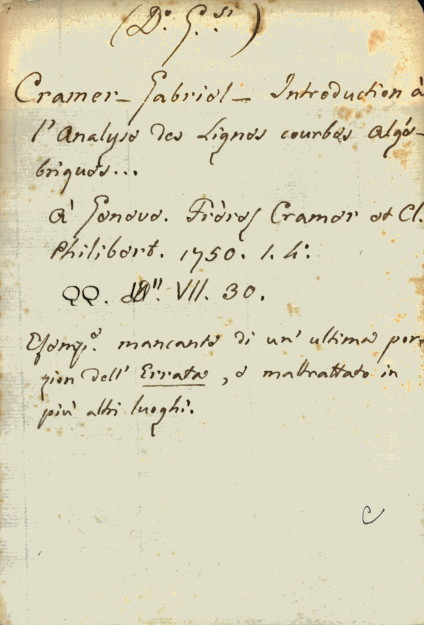 (D.º G.si)
Cramer - Gabriel - Introduction à
l'Analyse des Lignes courbes algé-
briques...
à Geneve. Frères Cramer et Cl.
Philibert. 1750. 1. 4.º
QQ. VII. 30.
Esemp.º mancante di un' ultima por-
zion dell' Errata, e maltrattato in
più altri luoghi.
C